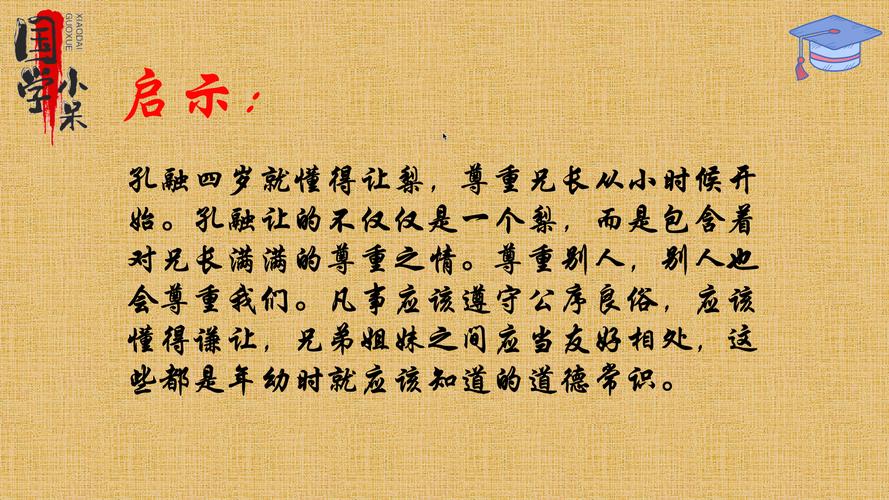 国学小呆
XIAODAI
GUOXUE
启示：
孔融四岁就懂得让梨，尊重兄长从小时候开
始。孔融让的不仅仅是一个梨，而是包含着
对兄长满满的尊重之情。尊重别人，别人也
会尊重我们。凡事应该遵守公序良俗，应该
懂得谦让，兄弟姐妹之间应当友好相处，这
些都是年幼时就应该知道的道德常识。